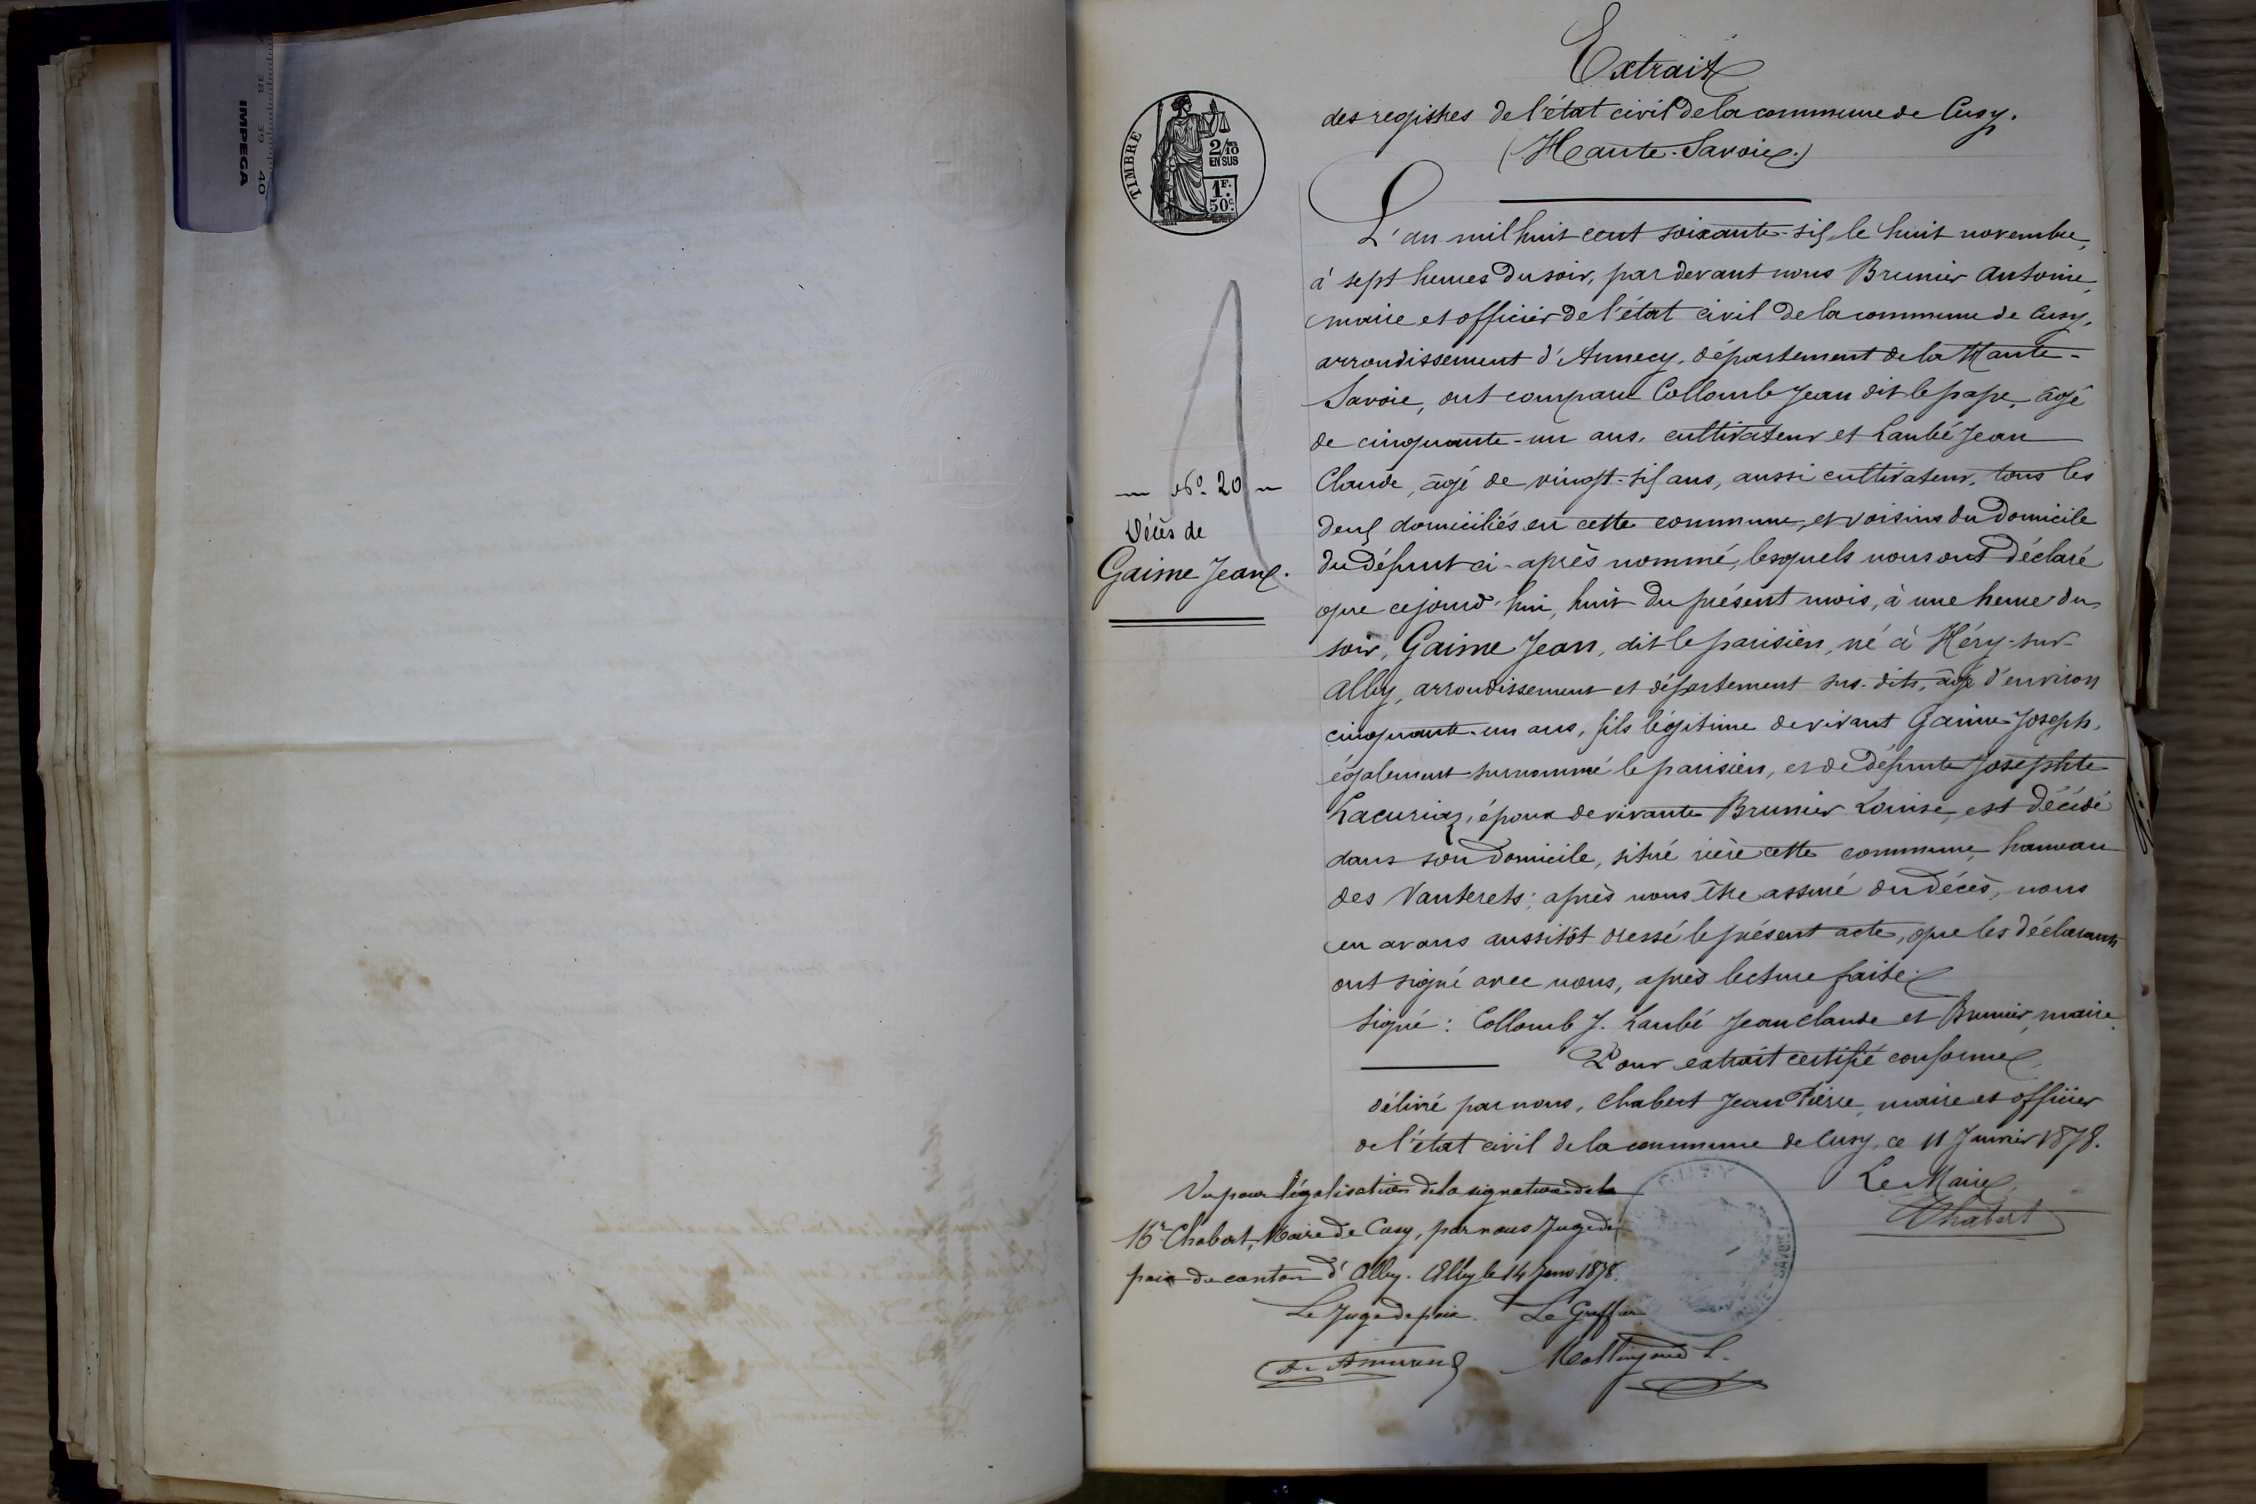 IMPEGA
38 39 40
Extrait
des registres de l'état civil de la commune de Cusy.
(Haute-Savoie.)
TIMBRE
2/10
EN SUS
1F.
50c.
L'an mil huit cent soixante-six le huit novembre,
à sept heures du soir, par devant nous Brunier Antoine,
maire et officier de l'état civil de la commune de Cusy,
arrondissement d'Annecy, département de la Haute-
Savoie, ont comparu Collomb Jean dit le pape, âgé
de cinquante-un ans, cultivateur et Laubé Jean
Claude, âgé de vingt-six ans, aussi cultivateur, tous les
deux domiciliés en cette commune, et voisins du domicile
du défunt ci-après nommé, lesquels nous ont déclaré
que cejourd'hui, huit du présent mois, à une heure du
soir, Gaime Jean, dit le parisien, né à Héry-sur-
Alby, arrondissement et département sus-dits, âgé d'environ
cinquante-un ans, fils légitime de vivant Gaime Joseph,
également surnommé le parisien, et de défunte Josephte
Lacuriaz, époux de vivante Brunier Louise, est décédé
dans son domicile, situé rière cette commune, hameau
des Vauterets; après nous être assuré du décès, nous
en avons aussitôt dressé le présent acte, que les déclarants
ont signé avec nous, après lecture faite.
Signé: Collomb J. Laubé Jean Claude et Brunier, maire.
No. 20
Décès de
Gaime Jean.
Pour extrait certifié conforme,
délivré par nous, Chabert Jean Pierre, maire et officier
de l'état civil de la commune de Cusy, ce 11 Janvier 1878.
Le Maire,
Chabert
Vu pour légalisation de la signature de la
Mr Chabert, Maire de Cusy, par nous Juge de
paix du canton d'Alby. Alby le 14 Janv 1878.
Le Juge de paix. Le Greffier
CUSY